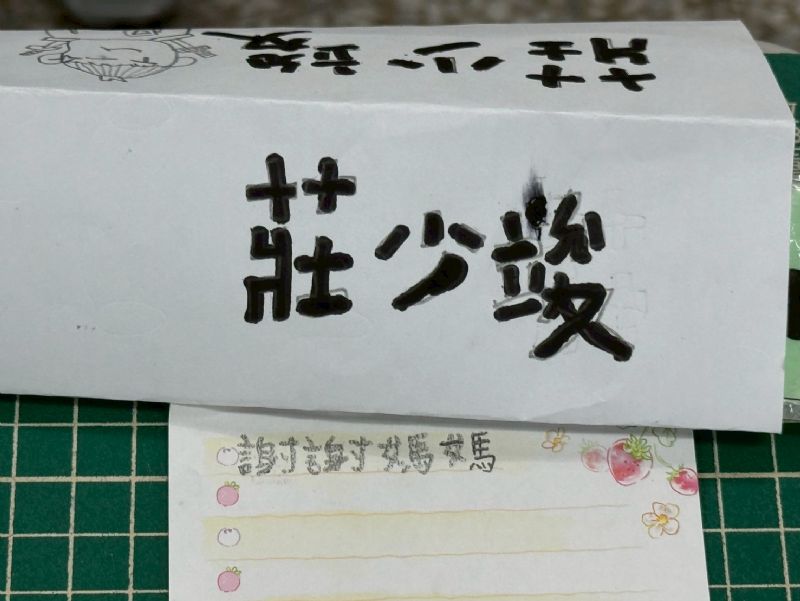 莊少竣
莊少竣
謝謝媽媽